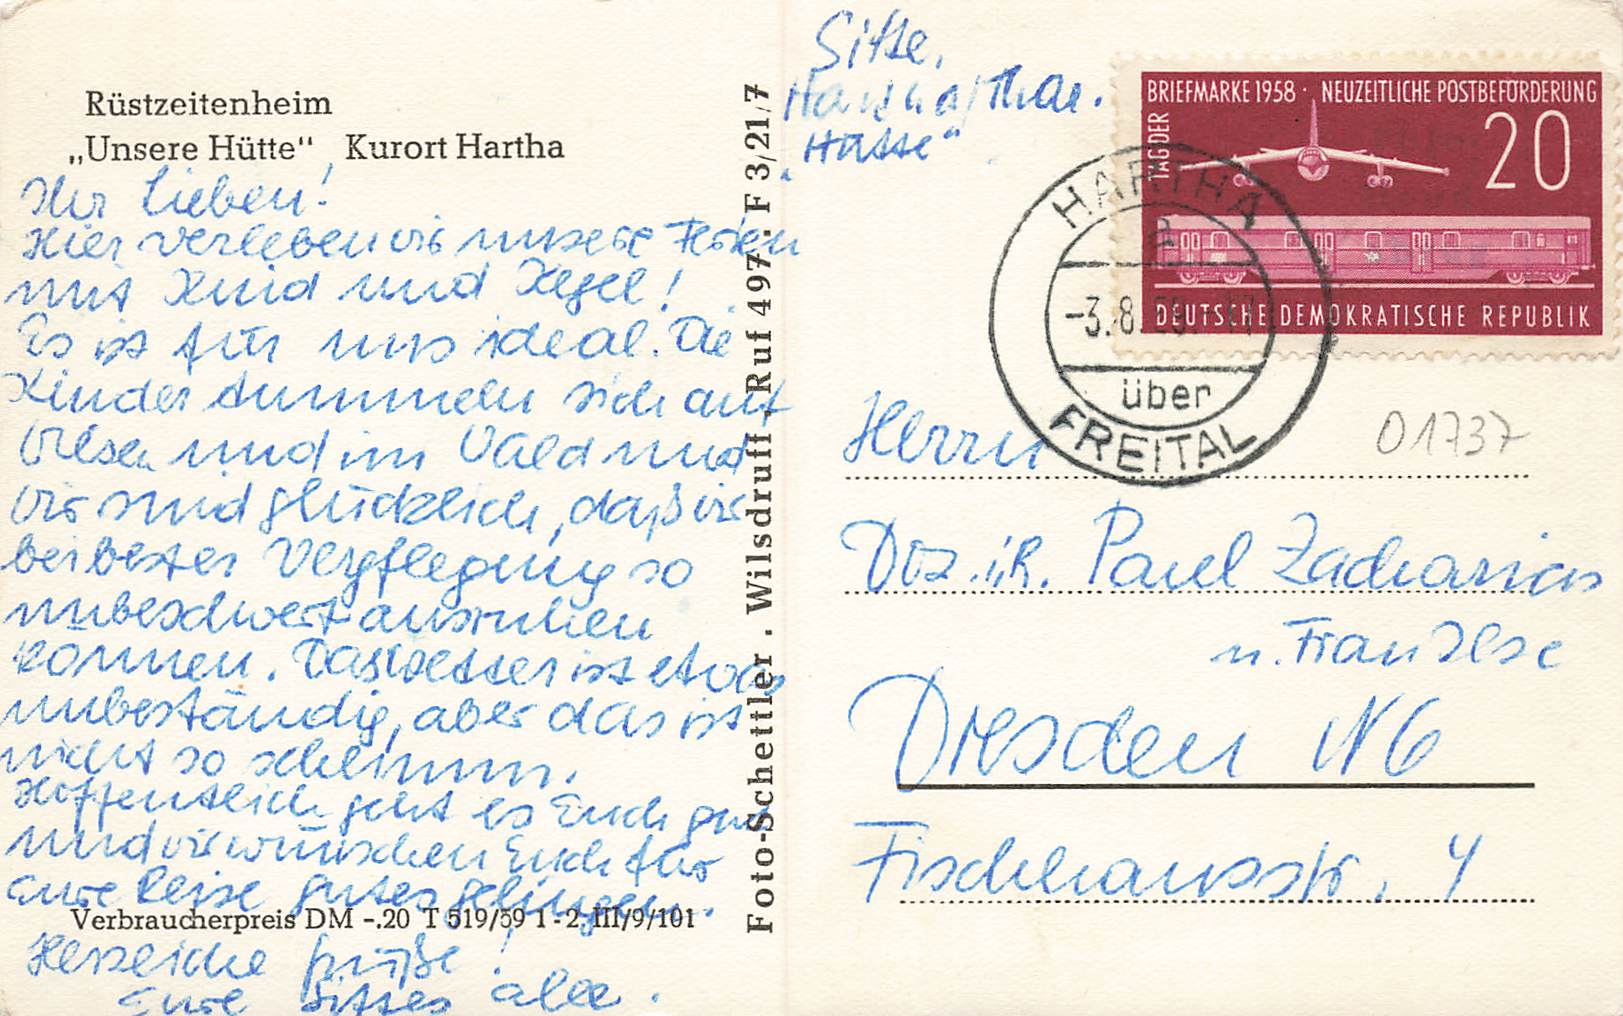 Rüstzeitenheim
„Unsere Hütte“ Kurort Hartha
Ihr Lieben!
Hier verleben wir unsere Ferien
mit Kind und Kegel!
Es ist für uns ideal. Die
Kinder tummeln sich auf
Wiesen und im Wald und
wir sind glücklich, daß wir
bei bester Verpflegung so
unbeschwert ausruhen
können. Das Wetter ist etwas
unbeständig, aber das ist
nicht so schlimm.
Hoffentlich geht es Euch gut
und wir wünschen Euch für
Eure Reise gutes gelingen.
Verbraucherpreis DM -.20 T 519/59 1-2 III/9/101
Herzliche Grüße!
Eure Sittes alle.
Foto-Schettler . Wilsdruff . Ruf 497 . F 3/21/7
Sitte,
Hartha/Thar.
"Hütte"
TAG DER BRIEFMARKE 1958 · NEUZEITLICHE POSTBEFÖRDERUNG
20
DEUTSCHE DEMOKRATISCHE REPUBLIK
HARTHA
a
-3.8.
über
FREITAL
01737
Herrn
Doz. i.R. Paul Zacharias
u. Frau Ilse
Dresden N6
Fischhausstr. 4